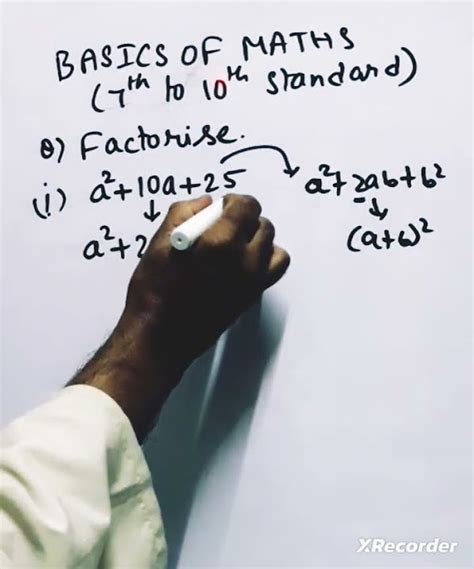 BASICS OF MATHS
(7th to 10th Standard)
Q) Factorise.
(i) a²+10a+25 → a²+2ab+b²
↓ ↓
a²+2 (a+b)²
XRecorder